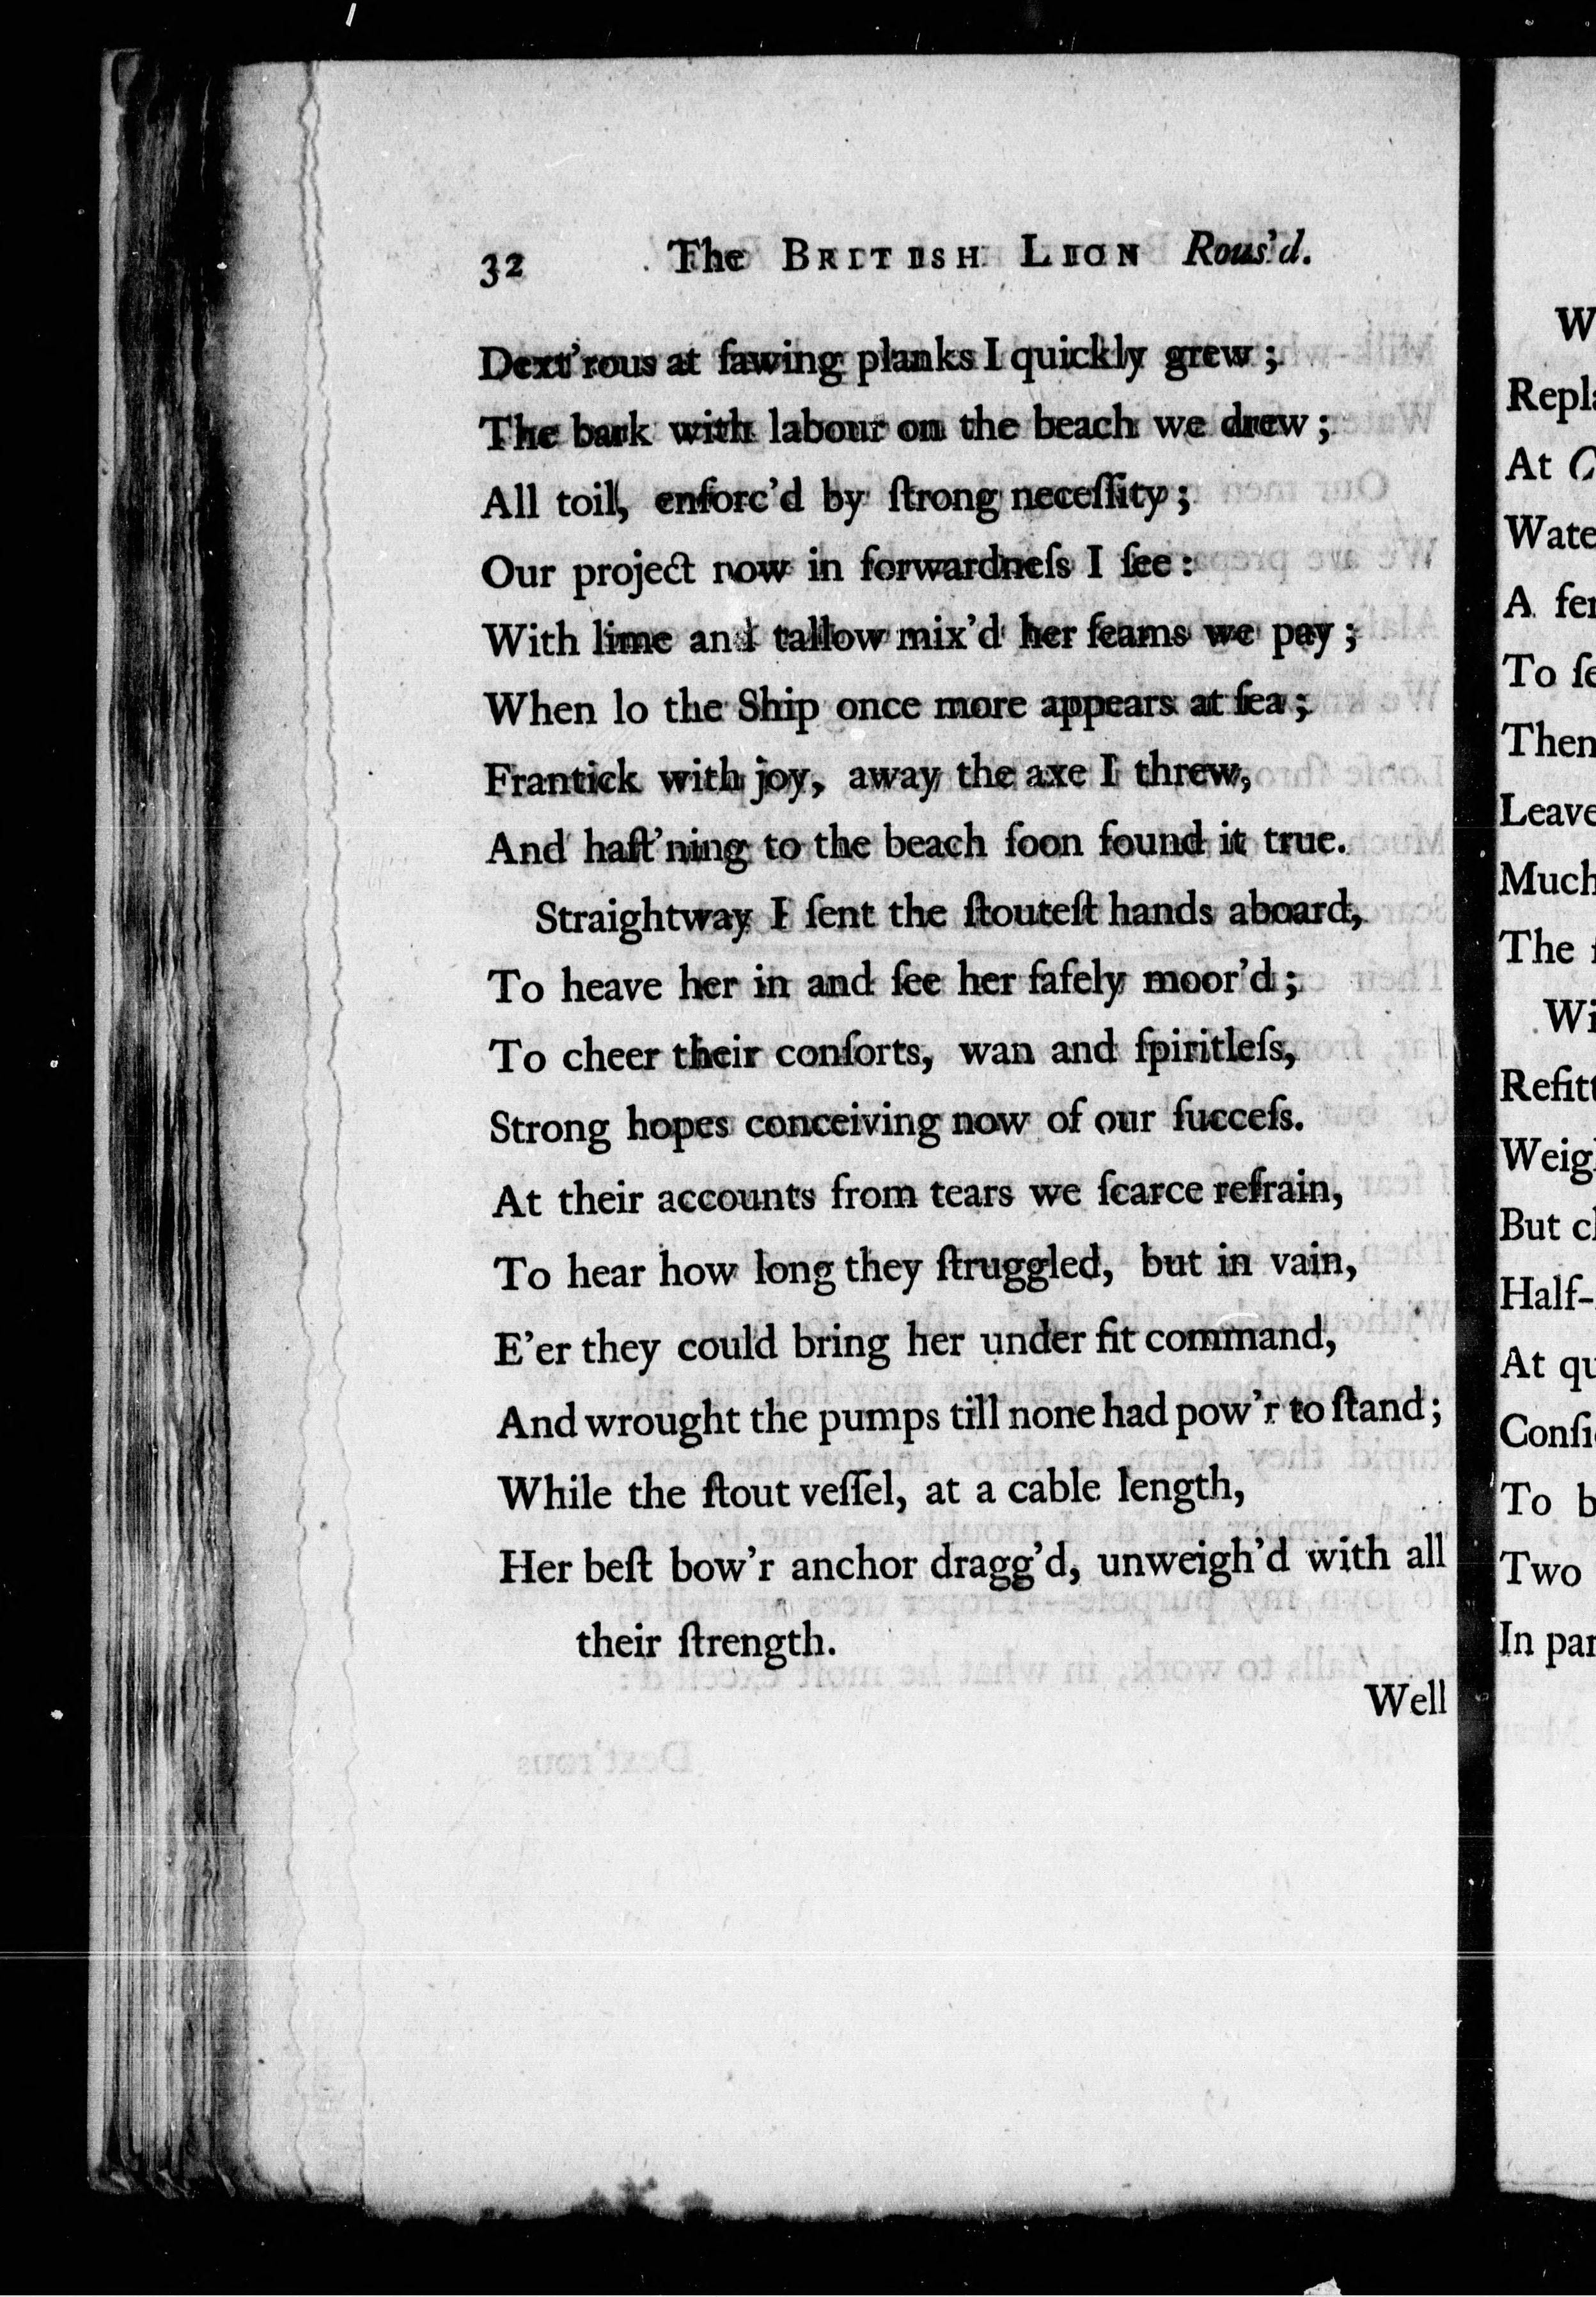 32 The BRITISH LION Rous'd.
Dext'rous at ſawing planks I quickly grew;
The bark with labour on the beach we drew;
All toil, enforc'd by ſtrong neceſſity;
Our project now in forwardneſs I ſee:
With lime and tallow mix'd her ſeams we pay;
When lo the Ship once more appears at ſea;
Frantick with joy, away the axe I threw,
And haſt'ning to the beach ſoon found it true.
Straightway I ſent the ſtouteſt hands aboard,
To heave her in and ſee her ſafely moor'd;
To cheer their conſorts, wan and ſpiritleſs,
Strong hopes conceiving now of our ſucceſs.
At their accounts from tears we ſcarce refrain,
To hear how long they ſtruggled, but in vain,
E'er they could bring her under fit command,
And wrought the pumps till none had pow'r to ſtand;
While the ſtout veſſel, at a cable length,
Her beſt bow'r anchor dragg'd, unweigh'd with all
their ſtrength.
Well
W
Repla
At C
Wate
A fer
To ſe
Then
Leave
Much
The
Wi
Refitt
Weig
But cl
Half-
At qu
Conſi
To b
Two
In par